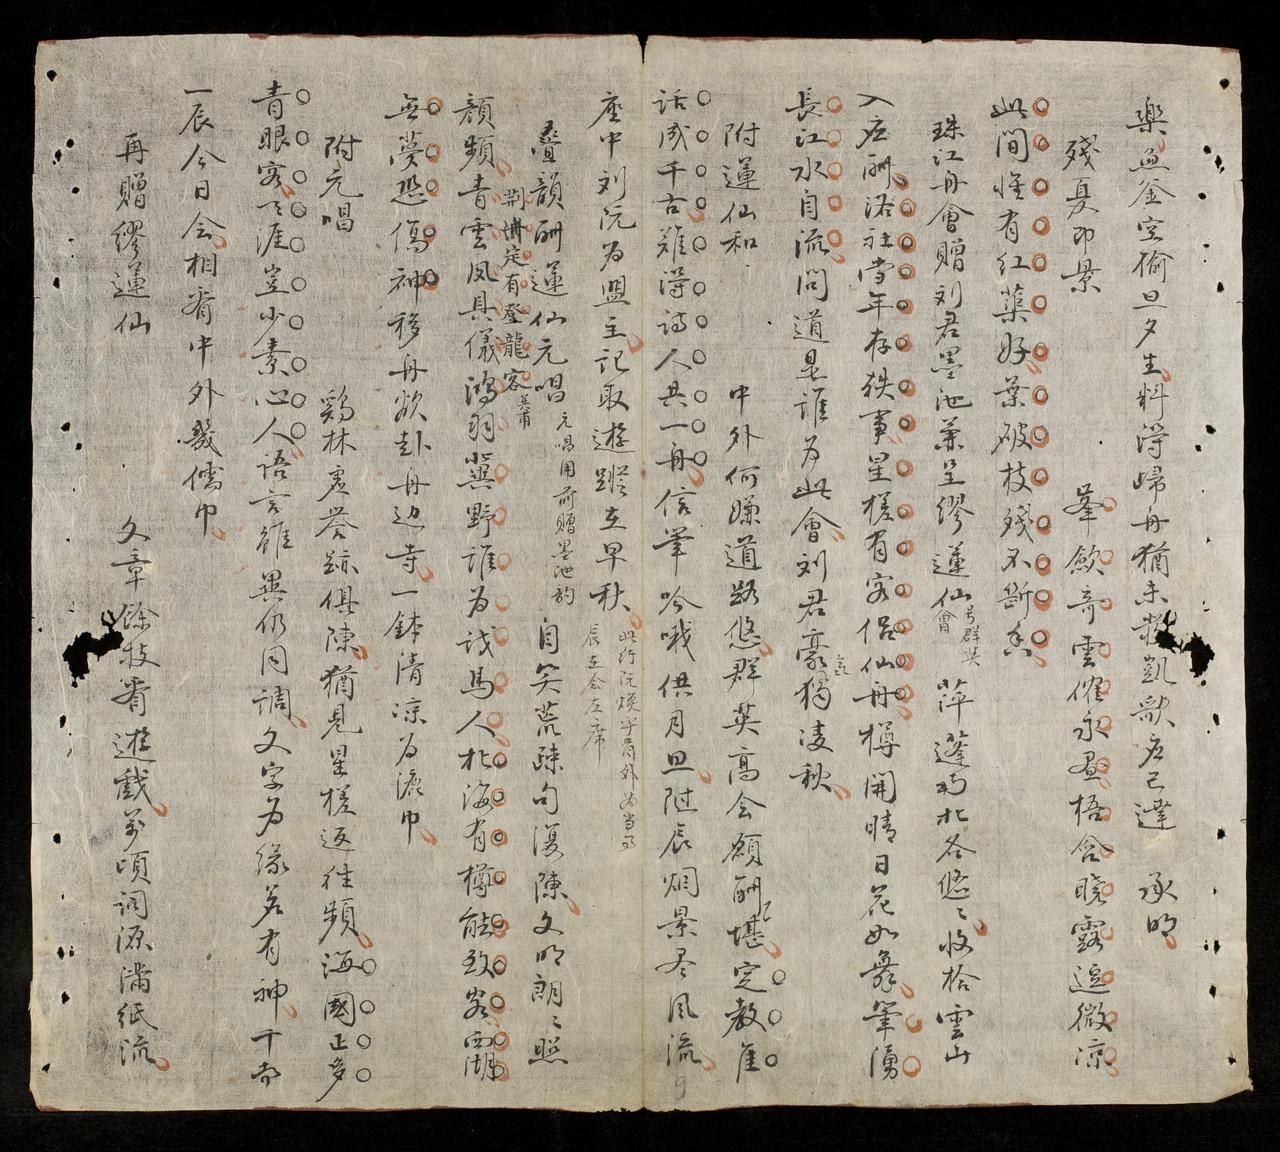 樂魚釜空偷旦夕生料得歸舟猶未教凱歌應已達 承明
殘夏即景 峯歛奇雲催永晝梧含曉露逗微涼
此間惟有紅蕖好葉破枝殘不斷香
珠江舟會贈刘君墨池兼呈繆蓮仙 萍蓬南北各悠〻收拾雲山
入応酬洛社當年存軼事星槎有客侶仙舟樽開晴日花如舞筆湧
長江水自流問道是誰為此會刘君豪氣獨凌秋
附蓮仙和 中外何嫌道路悠群英高会願酬堪定教隹
話成千古難得詩人共一舟信筆吟哦供月旦陡辰烟景尽風流
座中刘阮為盟主記取遊蹤在早秋 此行阮煥宇肩外為當
辰在会左席
疊韻酬蓮仙元唱 元唱用前贈墨池韵 自笑荒疎句復陳文明朗〻照
顏頻青雲夙具儀鴻羽冀野誰為識馬人北海有樽能致客西湖
荆州定有登龍客
無夢恐傷神移舟欲赴舟边寺一鉢清凉為漉巾
附元唱 鷄林虛誉跡俱陳猶見星槎返往頻海國正多
青眼客天涯豈少素心人語言雖異仍同調文字為緣若有神千古
一辰今日会相看中外幾儒巾
再贈繆蓮仙 文章餘技肴遊戲萬頃詞源滿紙流